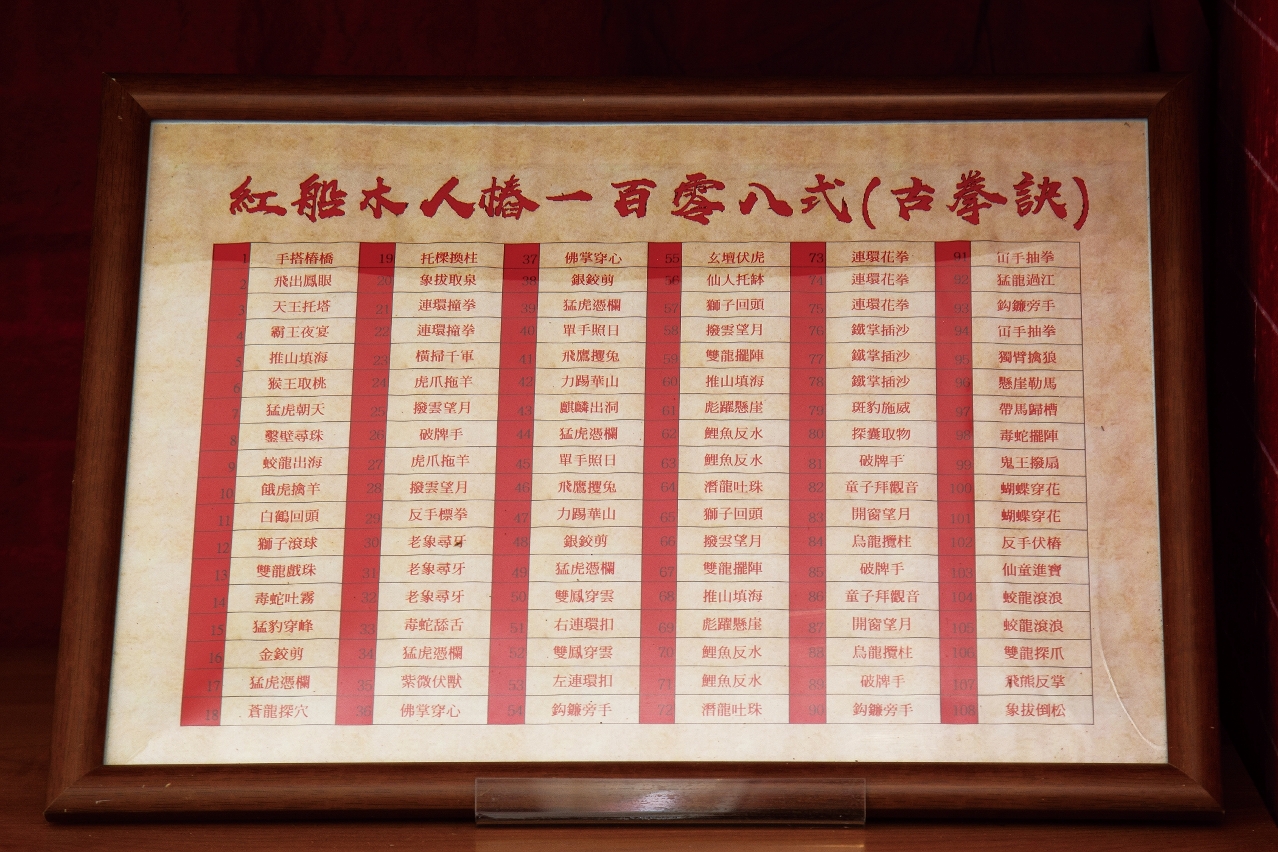 紅船木人樁一百零八式(古拳訣)
1 手搭樁橋
2 飛出鳳眼
3 天王托塔
4 霸王夜宴
5 推山填海
6 猴王取桃
7 猛虎朝天
8 鑿壁尋珠
9 蛟龍出海
10 餓虎擒羊
11 白鶴回頭
12 獅子滾球
13 雙龍戲珠
14 毒蛇吐霧
15 猛豹穿峰
16 金鉸剪
17 猛虎憑欄
18 蒼龍探穴
19 托樑換柱
20 象拔取泉
21 連環撞拳
22 連環撞拳
23 橫掃千軍
24 虎爪拖羊
25 撥雲望月
26 破牌手
27 虎爪拖羊
28 撥雲望月
29 反手標拳
30 老象尋牙
31 老象尋牙
32 老象尋牙
33 毒蛇舔舌
34 猛虎憑欄
35 紫微伏獸
36 佛掌穿心
37 佛掌穿心
38 銀鉸剪
39 猛虎憑欄
40 單手照日
41 飛鷹攫兔
42 力踢華山
43 麒麟出洞
44 猛虎憑欄
45 單手照日
46 飛鷹攫兔
47 力踢華山
48 銀鉸剪
49 猛虎憑欄
50 雙鳳穿雲
51 右連環扣
52 雙鳳穿雲
53 左連環扣
54 鈎鐮旁手
55 玄壇伏虎
56 仙人托缽
57 獅子回頭
58 撥雲望月
59 雙龍擺陣
60 推山填海
61 彪躍懸崖
62 鯉魚反水
63 鯉魚反水
64 潛龍吐珠
65 獅子回頭
66 撥雲望月
67 雙龍擺陣
68 推山填海
69 彪躍懸崖
70 鯉魚反水
71 鯉魚反水
72 潛龍吐珠
73 連環花拳
74 連環花拳
75 連環花拳
76 鐵掌插沙
77 鐵掌插沙
78 鐵掌插沙
79 斑豹施威
80 探囊取物
81 破牌手
82 童子拜觀音
83 開窗望月
84 烏龍攬柱
85 破牌手
86 童子拜觀音
87 開窗望月
88 烏龍攬柱
89 破牌手
90 鈎鐮旁手
91 手抽拳
92 猛龍過江
93 鈎鐮旁手
94 手抽拳
95 獨臂擒狼
96 懸崖勒馬
97 帶馬歸槽
98 毒蛇擺陣
99 鬼王撥扇
100 蝴蝶穿花
101 蝴蝶穿花
102 反手伏樁
103 仙童進寶
104 蛟龍滾浪
105 蛟龍滾浪
106 雙龍探爪
107 飛熊反掌
108 象拔倒松